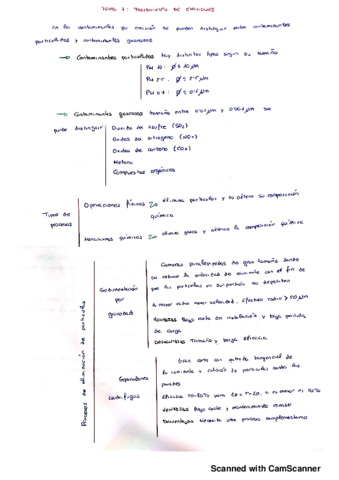 TEMA 7: TRATAMIENTO DE EMISIONES
En los contaminantes por emisión se pueden distinguir entre contaminantes
particulados y contaminantes gaseosos
→ Contaminantes particulados hay distintos tipos según su tamaño
PM 10: Ø ≤ 10 µm
PM 2.5: Ø ≤ 2.5 µm
PM 0.1: Ø ≤ 0.1 µm
→ Contaminantes gaseosos tamaño entre µm y µm se
puede distinguir
Dióxido de azufre (SO2)
Óxidos de nitrógeno (NOx)
Óxidos de carbono (COx)
Metano
Compuestos orgánicos
Tipos de
procesos
Operaciones físicas elimina partículas y no altera su composición
química
químicos elimina gases y altera la composición química
Procesos de eliminación de partículas
Sedimentación
por
gravedad
Cámaras de gran tamaño donde
se reduce la velocidad de corriente con el fin de
que las partículas en suspensión se depositen
A mayor radio mayor velocidad. Efectivo radio > 50 µm
Bajo coste en instalación y baja pérdida
de carga
Tamaño y baja eficacia
Separadores
centrífugos
Gran cono con entrada tangencial de
la corriente y colisión de partículas contra las
paredes
Bajo coste y mantenimiento escaso
Desventajas Necesita otro proceso complementario
Scanned with CamScanner